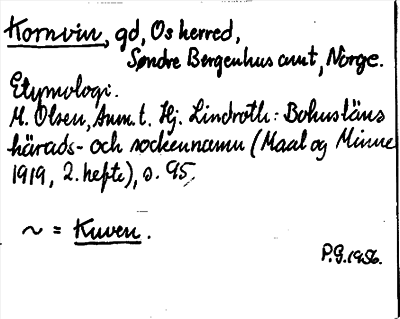 Kornvin, gd, Os herred,
Søndre Bergenhus amt, Norge.
Etymologi.
M. Olsen, Anm. t. Hj. Lindroth: Bohusläns
härads- och sockennamn (Maal og Minne
1919, 2. hefte), s. 95.
~ = Kuven.
P.G. 1956.